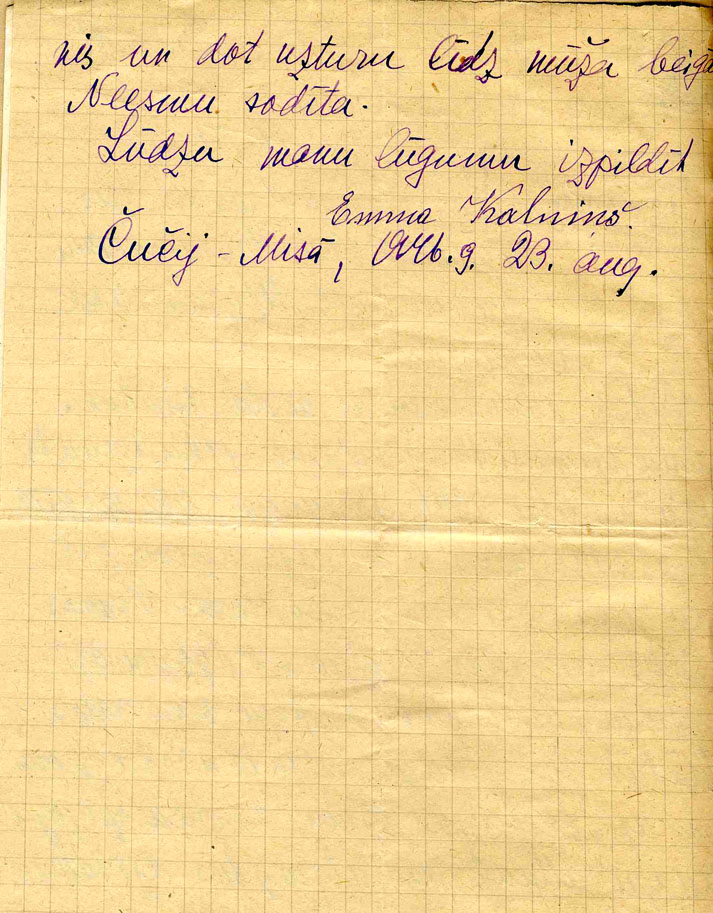 nis un dot uzturu līdz mūža beigā
Neesmu sodīta.
Lūdzu manu lūgumu izpildīt
Emma Kalniņš.
Čučij - Misā, 1946. g. 23. aug.